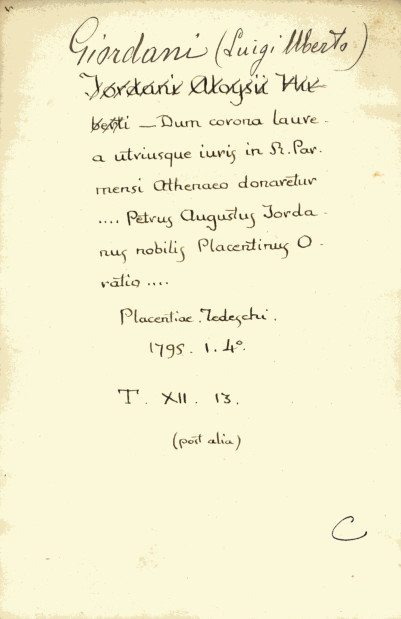 Giordani (Luigi Uberto)
Jordani Aloysii Hu-
berti — Dum corona laure-
a utriusque iuris in R. Par-
mensi Athenaeo donaretur
.... Petrus Augustus Jorda-
nus nobilis Placentinus O-
ratio ....
Placentiae. Tedeschi.
1795. 1. 4º.
T. XII. 13.
(post alia)
C